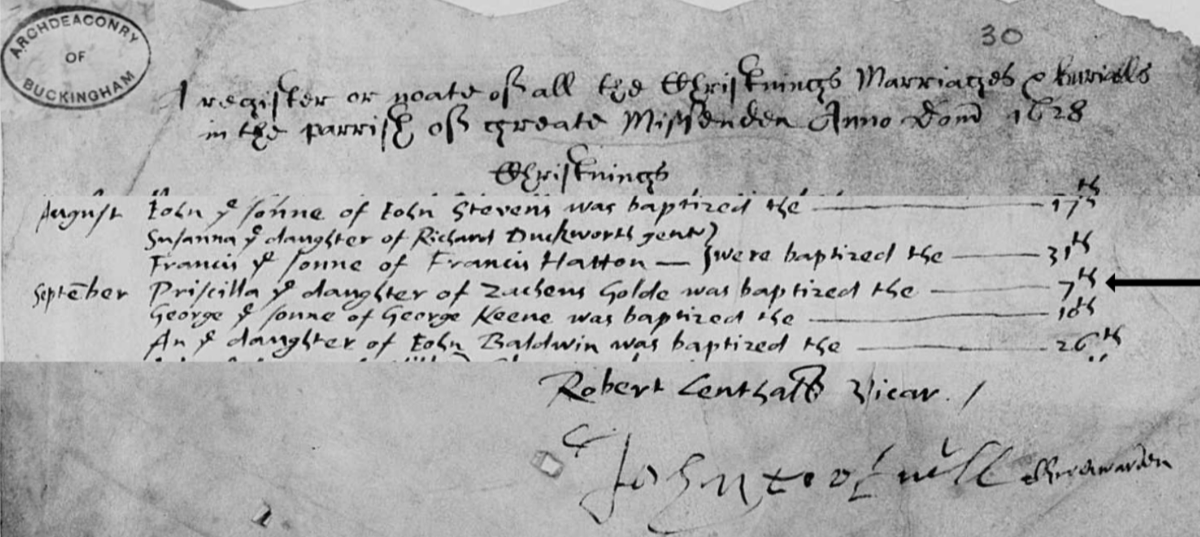 ARCHDEACONRY
OF
BUCKINGHAM
30
A register or noate of all the Christnings Marriages & burials
in the parrish of greate Missenden Anno Domi 1628
Christnings
August Iohn ye sonne of Iohn Stevens was baptized the 17th
Susanna ye daughter of Richard Duckworth gent
Francis ye sonne of Francis Hatton were baptized the 31th
September Priscilla ye daughter of Zacheus Golde was baptized the 7th
George ye sonne of George Keene was baptized the 10th
An ye daughter of Iohn Baldwin was baptized the 26th
Robert Lenthall Vicar
John Churchwarden